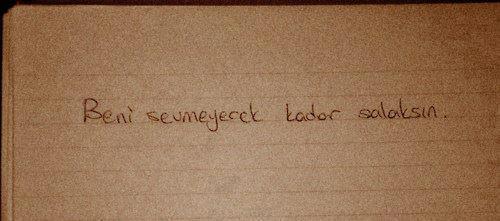 Beni sevmeyecek kadar salaksın.